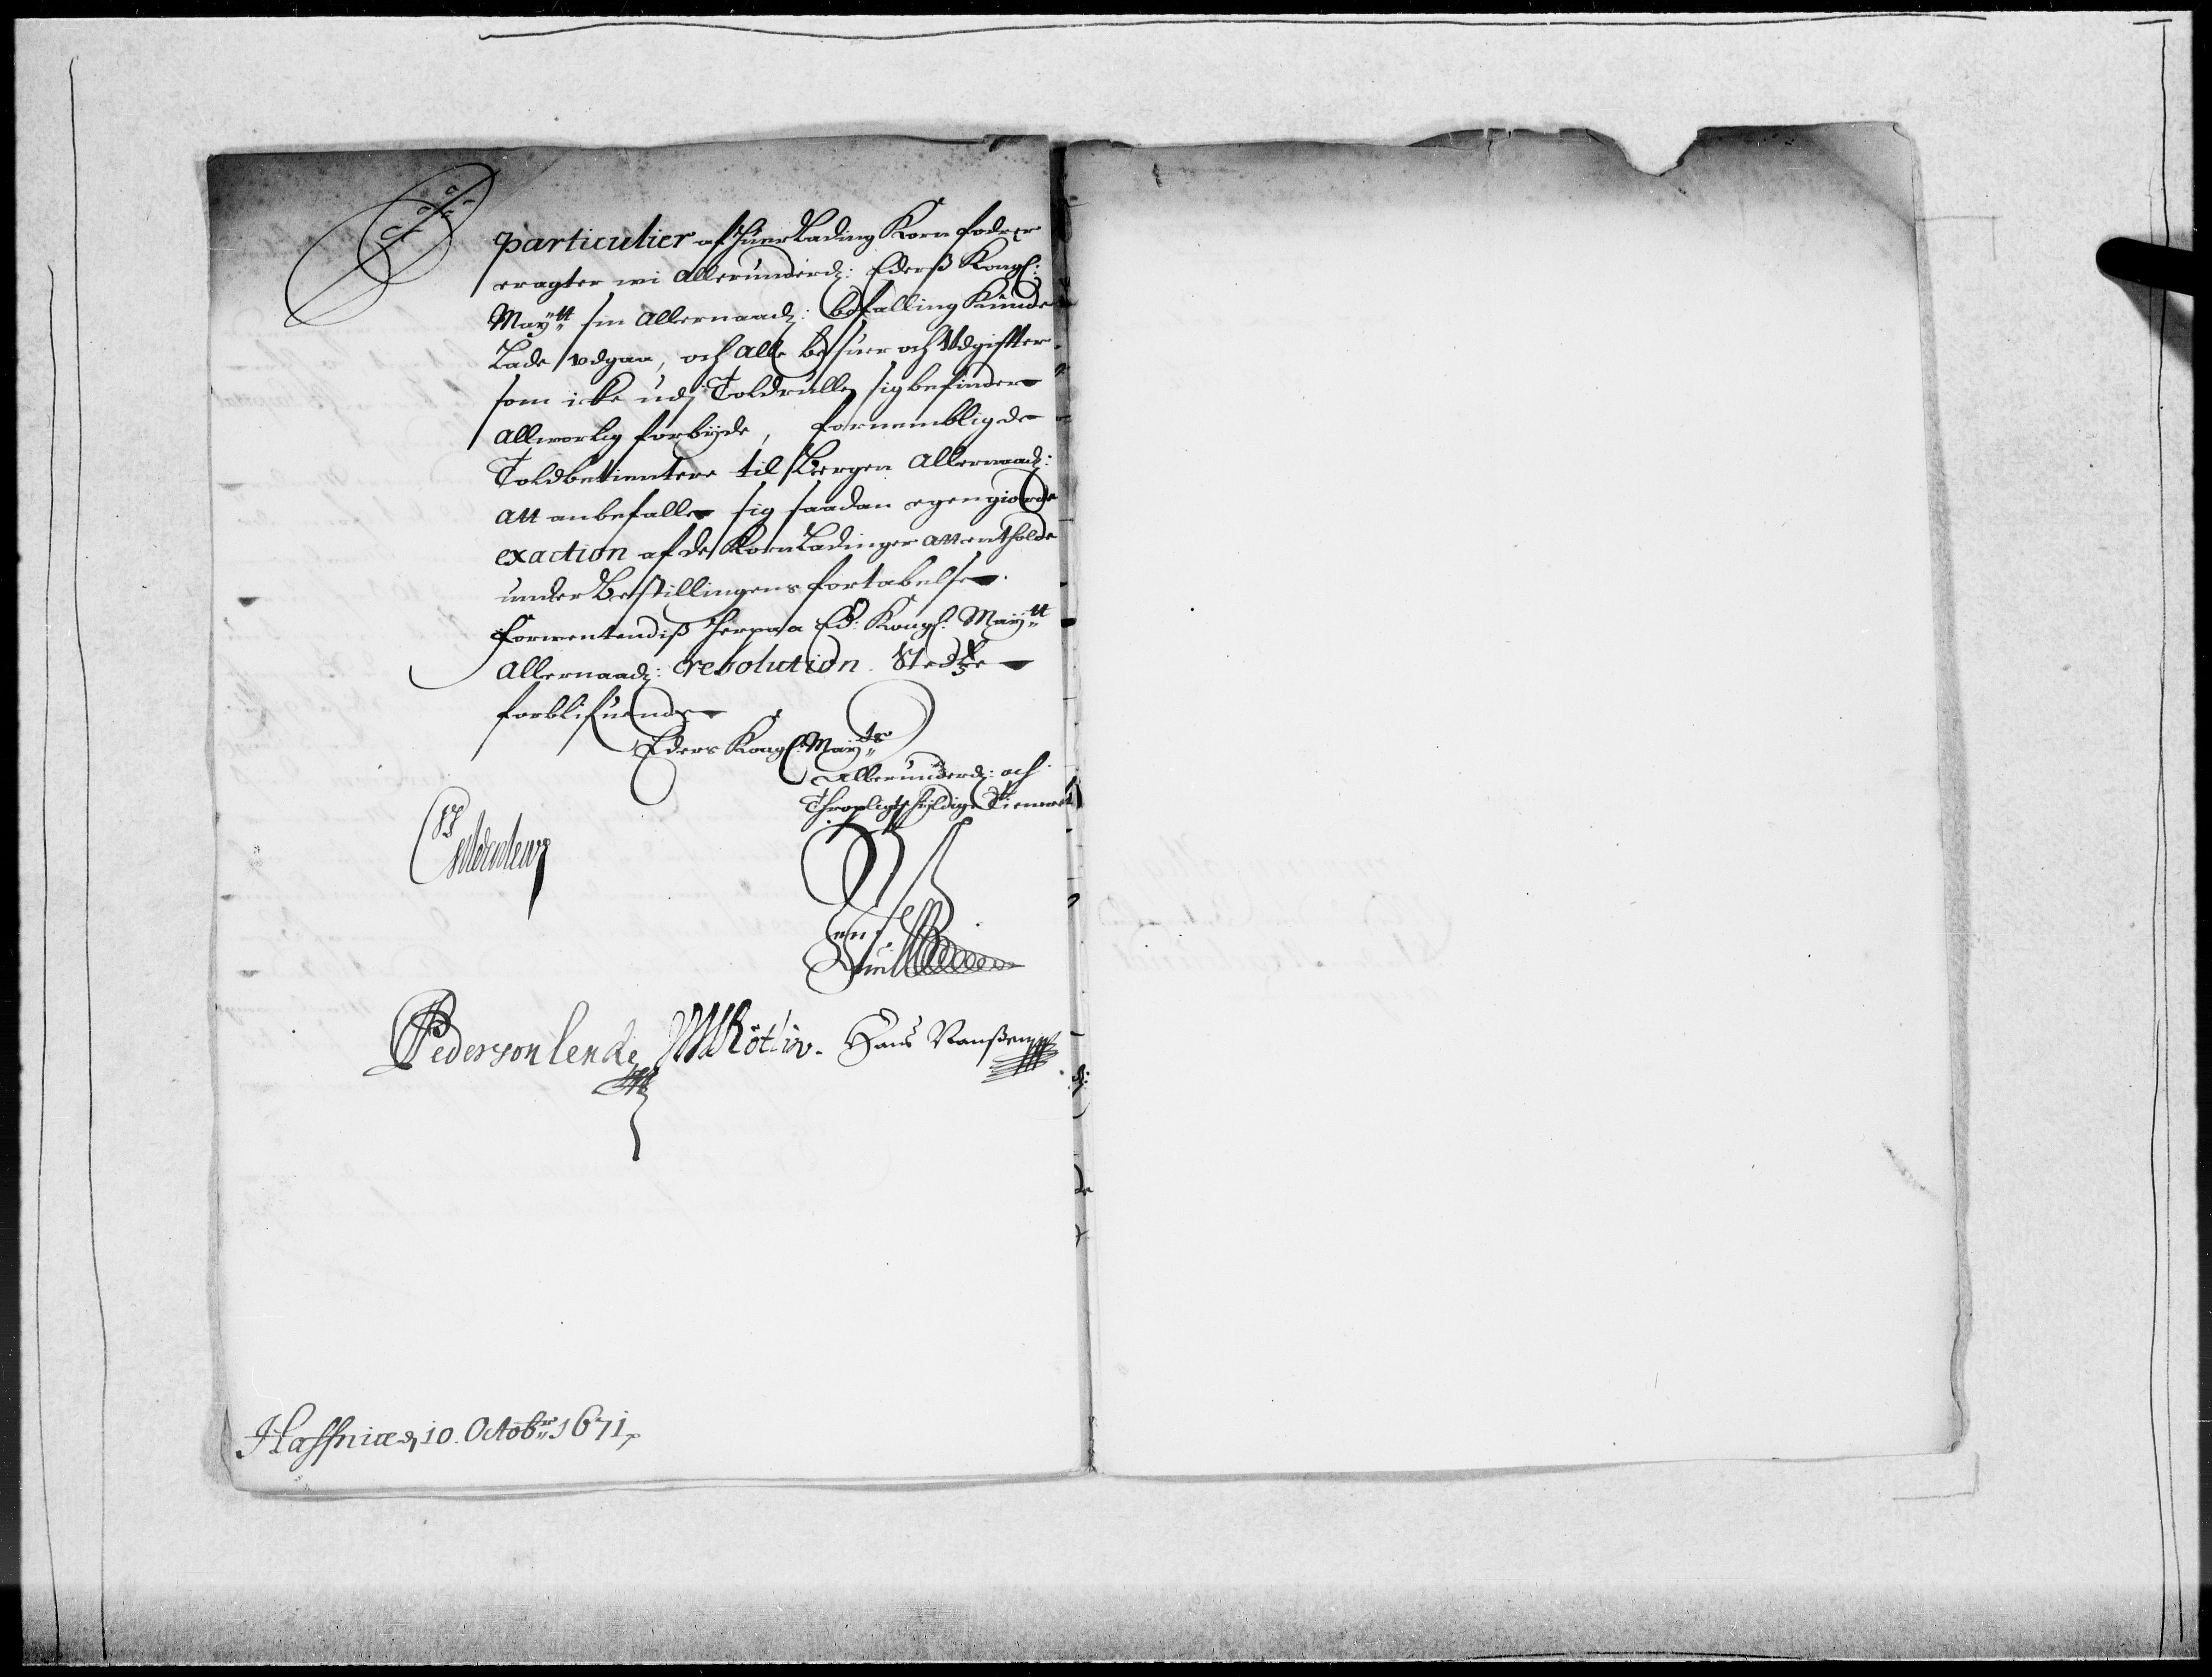 particulier af huer Lading Korn fodrer
eragter wi allerunderd: Ederß Kongl:
Maytt sin allernaad: befalling kunde
Lade udgaa, och alle besuer och Udgiffter
som icke udj Toldrullen sig befinder
allworlig forbyde, fornemblig de
Toldbetientere til Bergen allernaad:
att anbefalle sig saadan egengiorde
exaction af de Korn Ladinger att entholde
under Bestillingens fortabelse.
Forwentendiß herpaa Ed: Kongl: Maytt
allernaad: resolution. Stedtze
forblifuende
Eders Kongl: Mayts
allerunderd: och
Throepligtskyldige Tienere
Jens
Juel
Pederson lende
Hans Nanßen
Haffniæ d 10. Octobr 1671